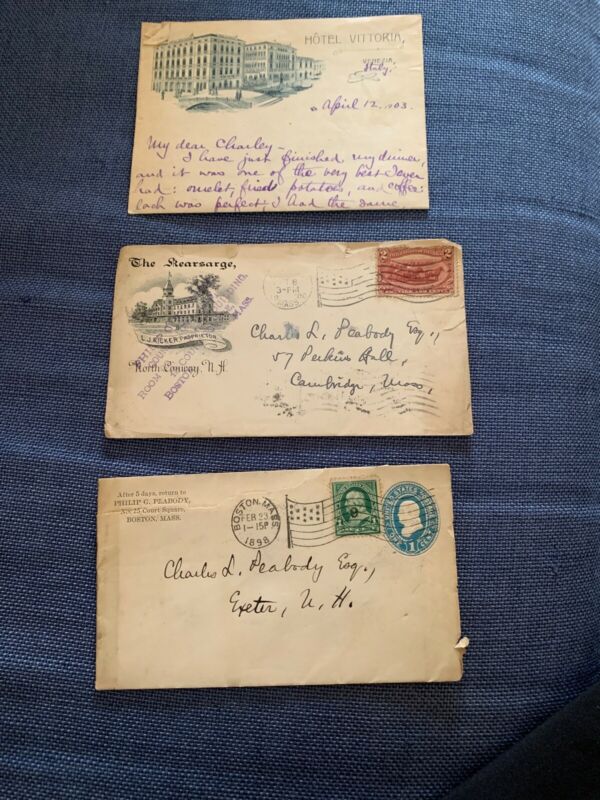 HÔTEL VITTORIA,
VENEZIA
Italy.
April 12, 1903.
My dear Charley –
I have just finished my dinner,
and it was one of the very best I ever
had: omelet, fried potatoes, and coffee:
each was perfect; I had the same
The Kearsarge,
L. J. RICKER PROPRIETOR
North Conway, N. H.
BOSTON
MASS.
ROOM
3-PM
MASS.
2
2
Charles L. Peabody Esq.,
57 Perkins Hall,
Cambridge, Mass,
After 5 days, return to
PHILIP G. PEABODY,
15 Court Square,
BOSTON, MASS.
BOSTON, MASS.
FEB 23
1-15P
1898
UNITED STATES
1 CENT
Charles L. Peabody Esq.,
Exeter, N. H.